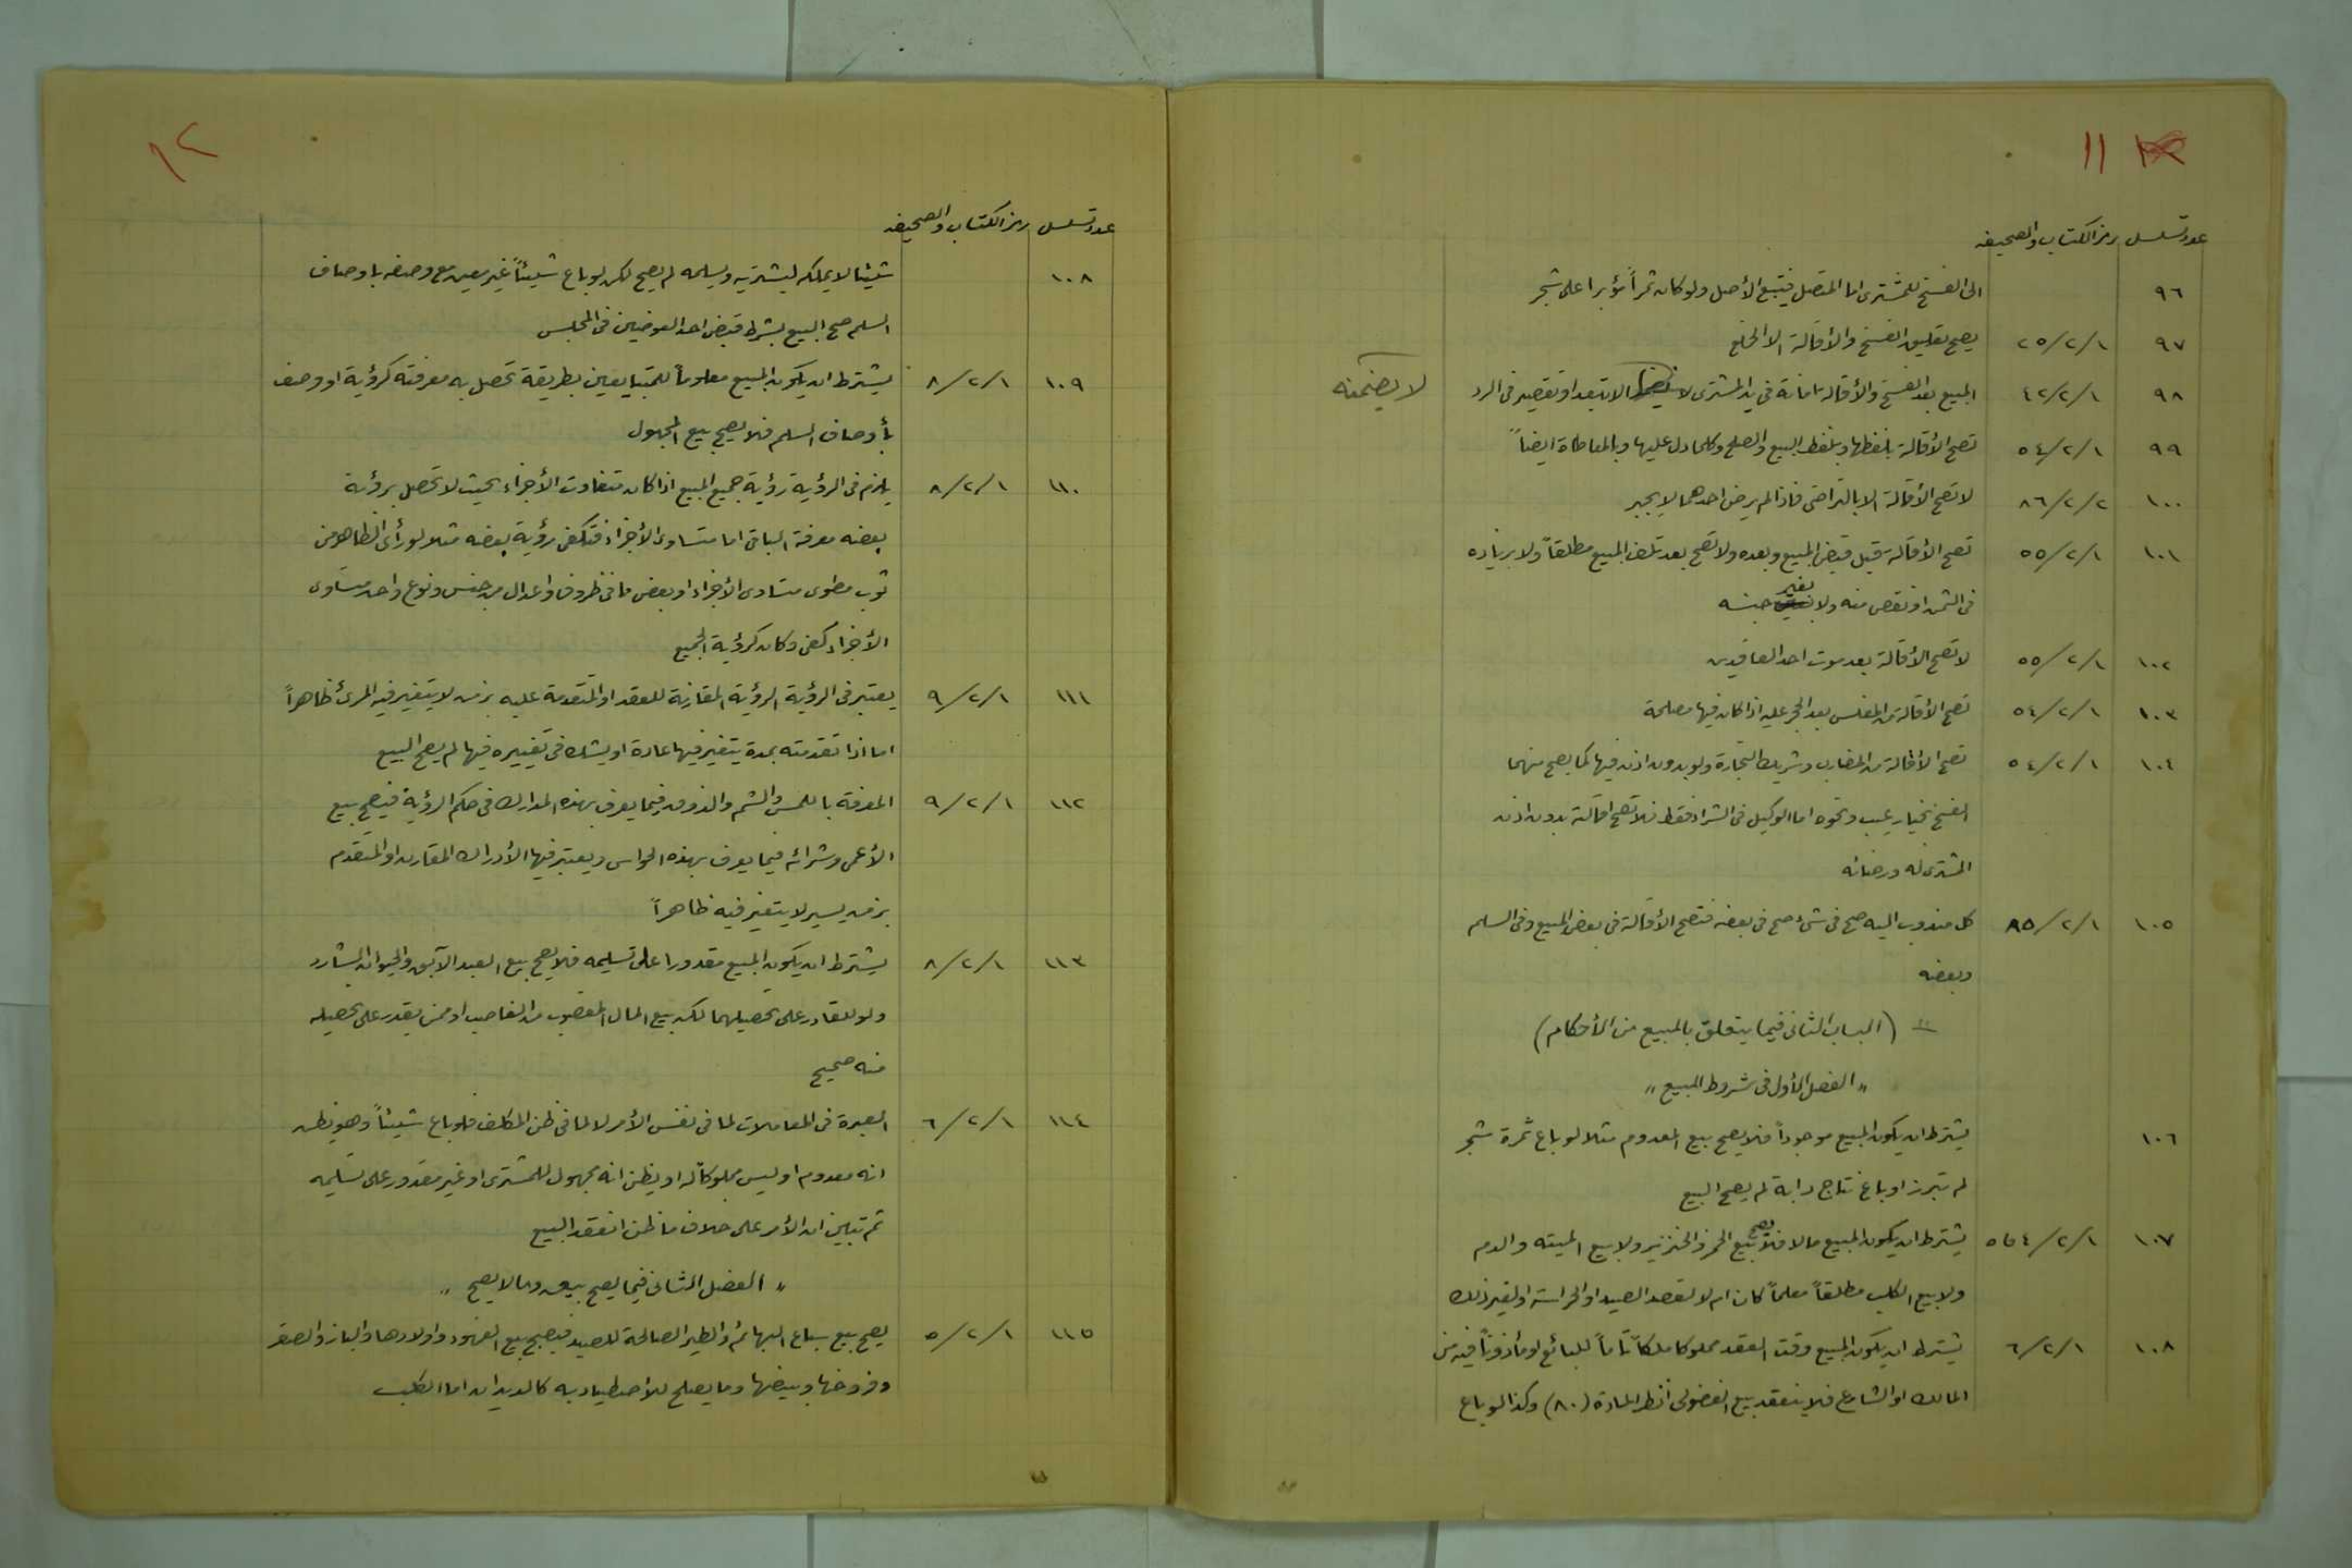 ١١
عدد تسلسل رمز الكتاب والصحيفه
٩٦ الى الفسخ للمشترى اما المتصل فيتبع الأصل ولو كان ثمراً مؤبرا على شجر
٩٧ ٢٥/٢/١ يصح تعليق الفسخ والأقالة الا الخلع
٩٨ ٤٢/٢/١ المبيع بعد الفسخ والأقالة امانة فى يد المشترى لا الا بتعد او تقصير فى الرد
لا يضمنه
٩٩ ٥٤/٢/١ تصح الأقالة بلفظها وبلفظ البيع والصلح وكلما دل عليها وبالمعاطاة ايضاً
١٠٠ ٨٦/٢/٢ لا تصح الأقالة الا بالتراضى فاذا لم يرض احدهما لا يجبر
١٠١ ٥٥/٢/١ تصح الأقالة قبل قبض المبيع وبعده ولا تصح بعد تلف المبيع مطلقاً ولا بزياده
فى الثمن او نقص منه ولا بغير جنسه
١٠٢ ٥٥/٢/١ لا تصح الأقالة بعد موت احد العاقدين
١٠٣ ٥٤/٢/١ تصح الأقالة من المفلس بعد الحجر عليه اذا كان فيها مصلحة
١٠٤ ٥٤/٢/١ تصح الأقالة من المضارب وشريك التجارة ولو بدون اذن فيها كما يصح منهما
الفسخ بخيار عيب ونحوه اما الوكيل فى الشراء فقط فلا تصح اقالته بدون اذن
المشترى له ورضائه
١٠٥ ٨٥/٢/١ كل مندوب اليه صح فى شئ صح فى بعضه فتصح الأقالة فى بعض المبيع وفى السلم
وبعضه
(الباب الثانى فيما يتعلق بالمبيع من الأحكام)
" الفصل الأول فى شروط المبيع "
١٠٦ يشترط ان يكون المبيع موجوداً فلا يصح بيع المعدوم مثلا لو باع ثمرة شجر
لم تبرز او باع نتاج دابة لم يصح البيع
١٠٧ ٤ و٥/٢/١ يشترط ان يكون المبيع مالا فلا يصح بيع الخمر والخنزير ولا بيع الميته والدم
ولا بيع الكلب مطلقاً معلماً كان ام لا لقصد الصيد او الحراسة او لغير ذلك
١٠٨ ٦/٢/١ يشترط ان يكون المبيع وقت العقد مملوكا ملكاً تاماً للبائع او مأذوناً فيه من
المالك او الشارع فلا ينعقد بيع الفضولى انظر المادة (٨٠) وكذا لو باع
١٢
عدد تسلسل رمز الكتاب والصحيفه
١٠٨ شيئا لا يملكه ليشتريه ويسلمه لم يصح لكن لو باع شيئاً غير معين مع وصفه باوصاف
السلم صح البيع بشرط قبض احد العوضين فى المجلس
١٠٩ ٨/٢/١ يشترط ان يكون المبيع معلوماً للمتبايعين بطريقة تحصل به معرفته كرؤية او وصف
بأوصاف السلم فلا يصح بيع المجهول
١١٠ ٨/٢/١ يلزم فى الرؤية رؤية جميع المبيع اذا كان متفاوت الأجزاء بحيث لا تحصل برؤية
بعضه معرفة الباقى اما متساوى الأجزاء فتكفى رؤية بعضه مثلا لو رأى الظاهر من
ثوب مطوى متساوى الأجزاء او بعض ما فى ظروف واعدال من جنس ونوع واحد متساوى
الأجزاء كفى وكان كرؤية الجميع
١١١ ٩/٢/١ يعتبر فى الرؤية الرؤية المقارنة للعقد او المتقدمة عليه بزمن لا يتغير فيه المرئ ظاهراً
اما اذا تقدمته بمدة يتغير فيها عادة او يشك فى تغييره فيها لم يصح البيع
١١٢ ٩/٢/١ المعرفة باللمس والشم والذوق فيما يعرف بهذه المدارك فى حكم الرؤية فيصح بيع
الأعمى وشرائه فيما يعرف بهذه الحواس ويعتبر فيها الأدراك المقارن او المتقدم
بزمن يسير لا يتغير فيه ظاهراً
١١٣ ٨/٢/١ يشترط ان يكون المبيع مقدورا على تسليمه فلا يصح بيع العبد الآبق والحيوان الشارد
ولو للقادر على تحصيلهما لكن بيع المال المغصوب من الغاصب او ممن يقدر على تحصيله
منه صحيح
١١٤ ٦/٢/١ العبرة فى المعاملات لما فى نفس الأمر لا لما فى ظن المكلف فلو باع شيئاً وهو يظن
انه معدوم او ليس مملوكا له او يظن انه مجهول للمشترى او غير مقدور على تسليمه
ثم تبين ان الأمر على خلاف ما ظن انعقد البيع
" الفصل الثانى فيما يصح بيعه وما لا يصح "
١١٥ ٥/٢/١ يصح بيع سباع البهائم والطير الصالحة للصيد فيصح بيع الفهود واولادها والباز والصقر
وفروخها وبيضها وما يصلح للأصطياد به كالديدان اما الكلب